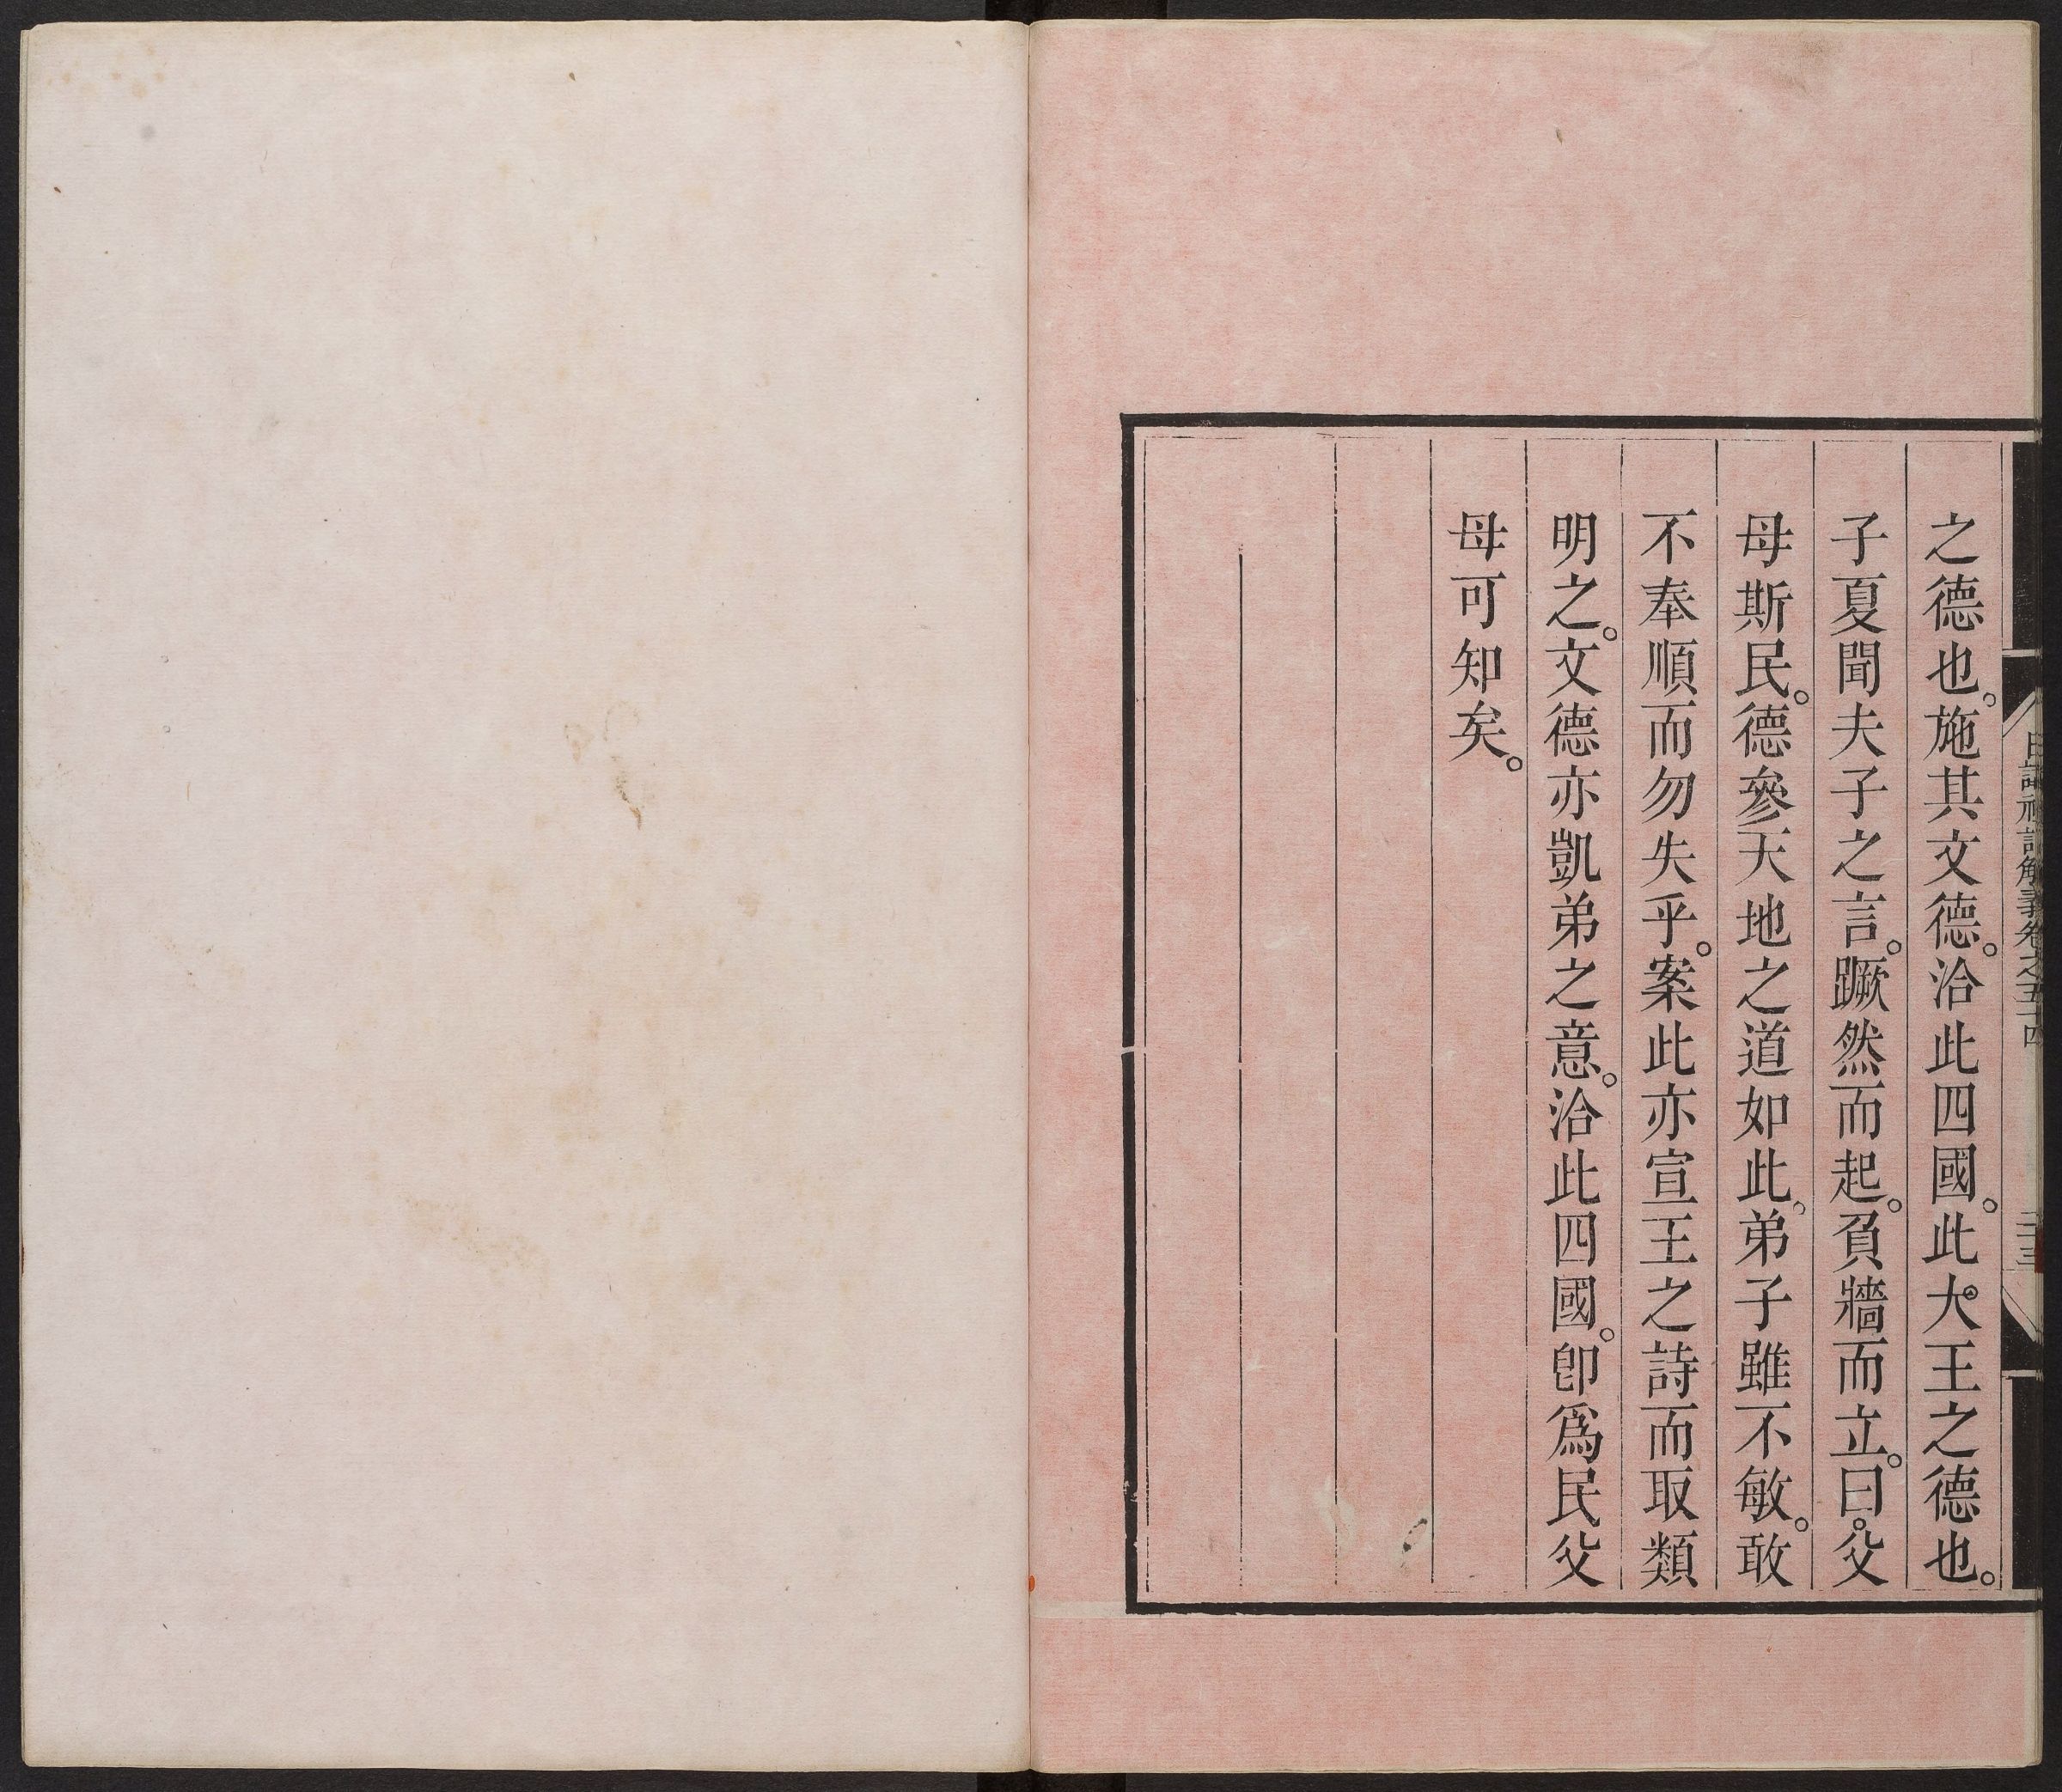 日講禮記解義卷之五十四
之德也。施其文德。洽此四國。此大王之德也。
子夏聞夫子之言。蹶然而起。負牆而立。曰。父
母斯民。德參天地之道如此。弟子雖不敏。敢
不奉順而勿失乎。案此亦宣王之詩而取類
明之。文德亦凱弟之意。洽此四國。卽爲民父
母可知矣。